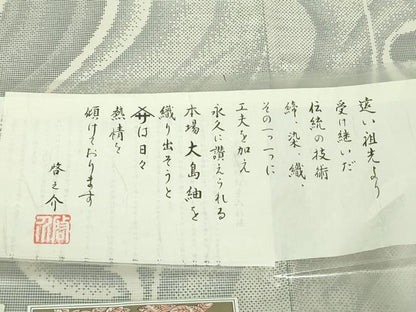 遠い祖先より
受け継いだ
伝統の技術
締、染、織、
その一つ一つに
工夫を加え
永久に讃えられる
本場大島紬を
織り出そうと
は日々
熱情を
傾けております
啓之介